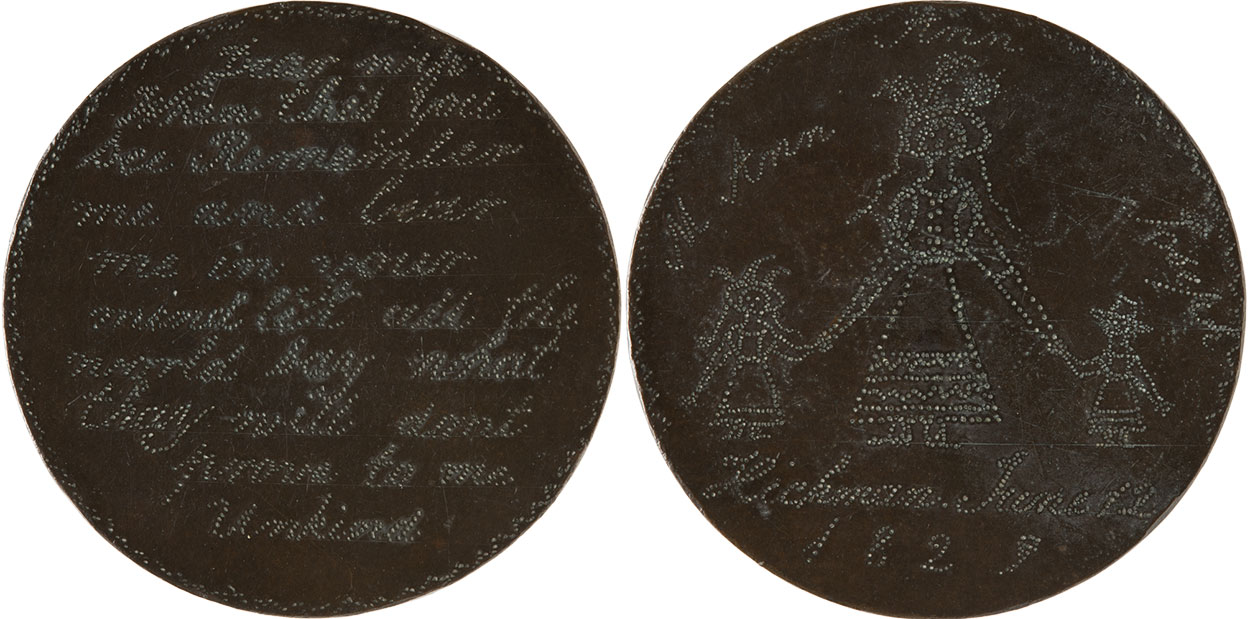 Dear wife
When this you
see Remember
me and bear
me in your
mind Let all the
world say what
thay will dont
prove to me
Unkind
Ann
182